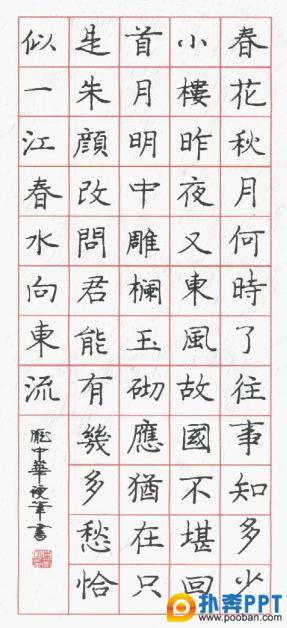 春花秋月何時了往事知多少
小樓昨夜又東風故國不堪回
首月明中雕欄玉砌應猶在只
是朱顏改問君能有幾多愁恰
似一江春水向東流
龐中華硬筆書
扑奔PPT
www.pooban.com